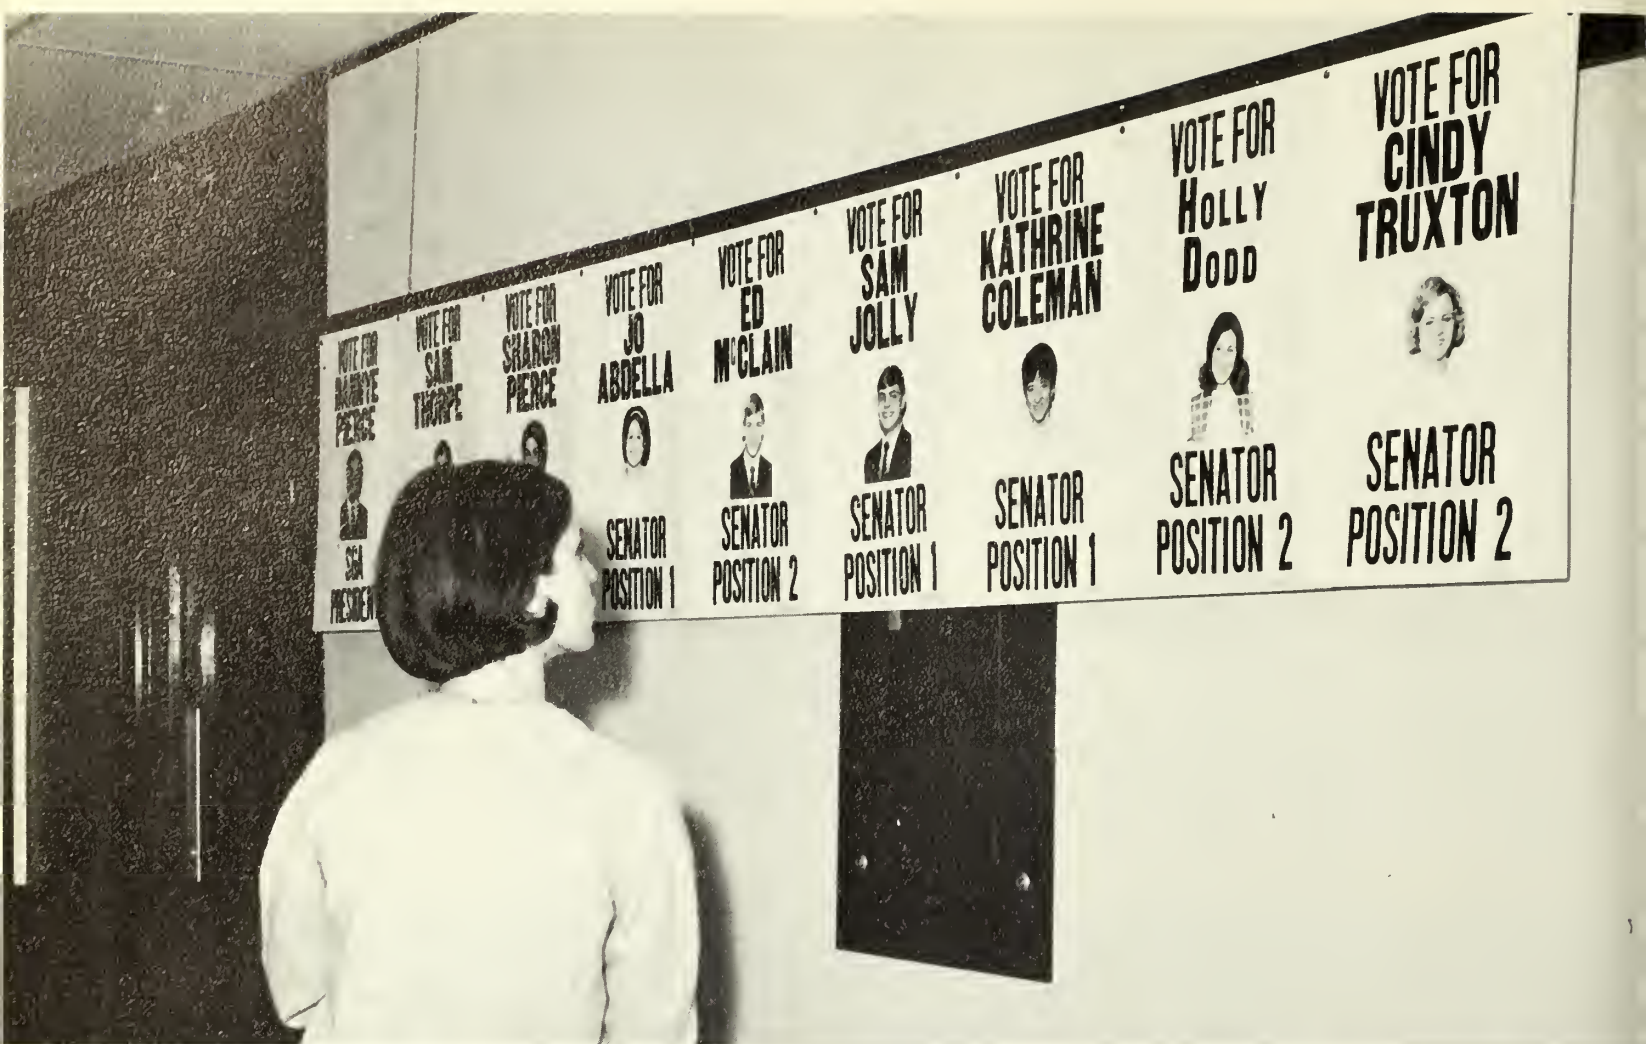 VOTE FOR
PIERCE
SGA
PRESIDENT
VOTE FOR
SAM
THORPE
VOTE FOR
SHARON
PIERCE
VOTE FOR
JO
ABDELLA
SENATOR
POSITION 1
VOTE FOR
ED
McCLAIN
SENATOR
POSITION 2
VOTE FOR
SAM
JOLLY
SENATOR
POSITION 1
VOTE FOR
KATHRINE
COLEMAN
SENATOR
POSITION 1
VOTE FOR
HOLLY
DODD
SENATOR
POSITION 2
VOTE FOR
CINDY
TRUXTON
SENATOR
POSITION 2